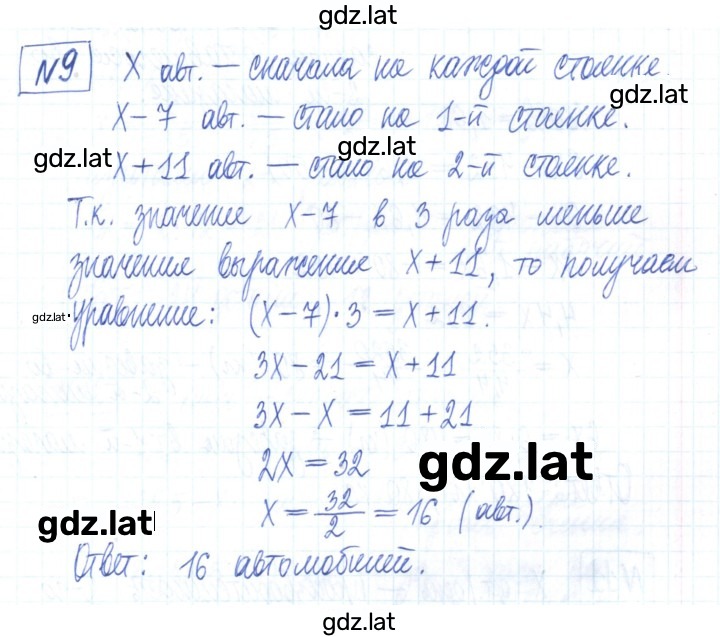 gdz.lat
№9 X авт. — сначала на каждой стоянке
gdz.lat
X−7 авт. — стало на 1-й стоянке.
gdz.lat gdz.lat
X+11 авт. — стало на 2-й стоянке.
Т.к. значение X−7 в 3 раза меньше
значения выражения X+11, то получаем
gdz.lat уравнение: (X−7)·3=X+11.
3X−21=X+11
3X−X=11+21
2X=32
gdz.lat
X=32/2=16 (авт.)
gdz.lat
Ответ: 16 автомобилей.
gdz.lat